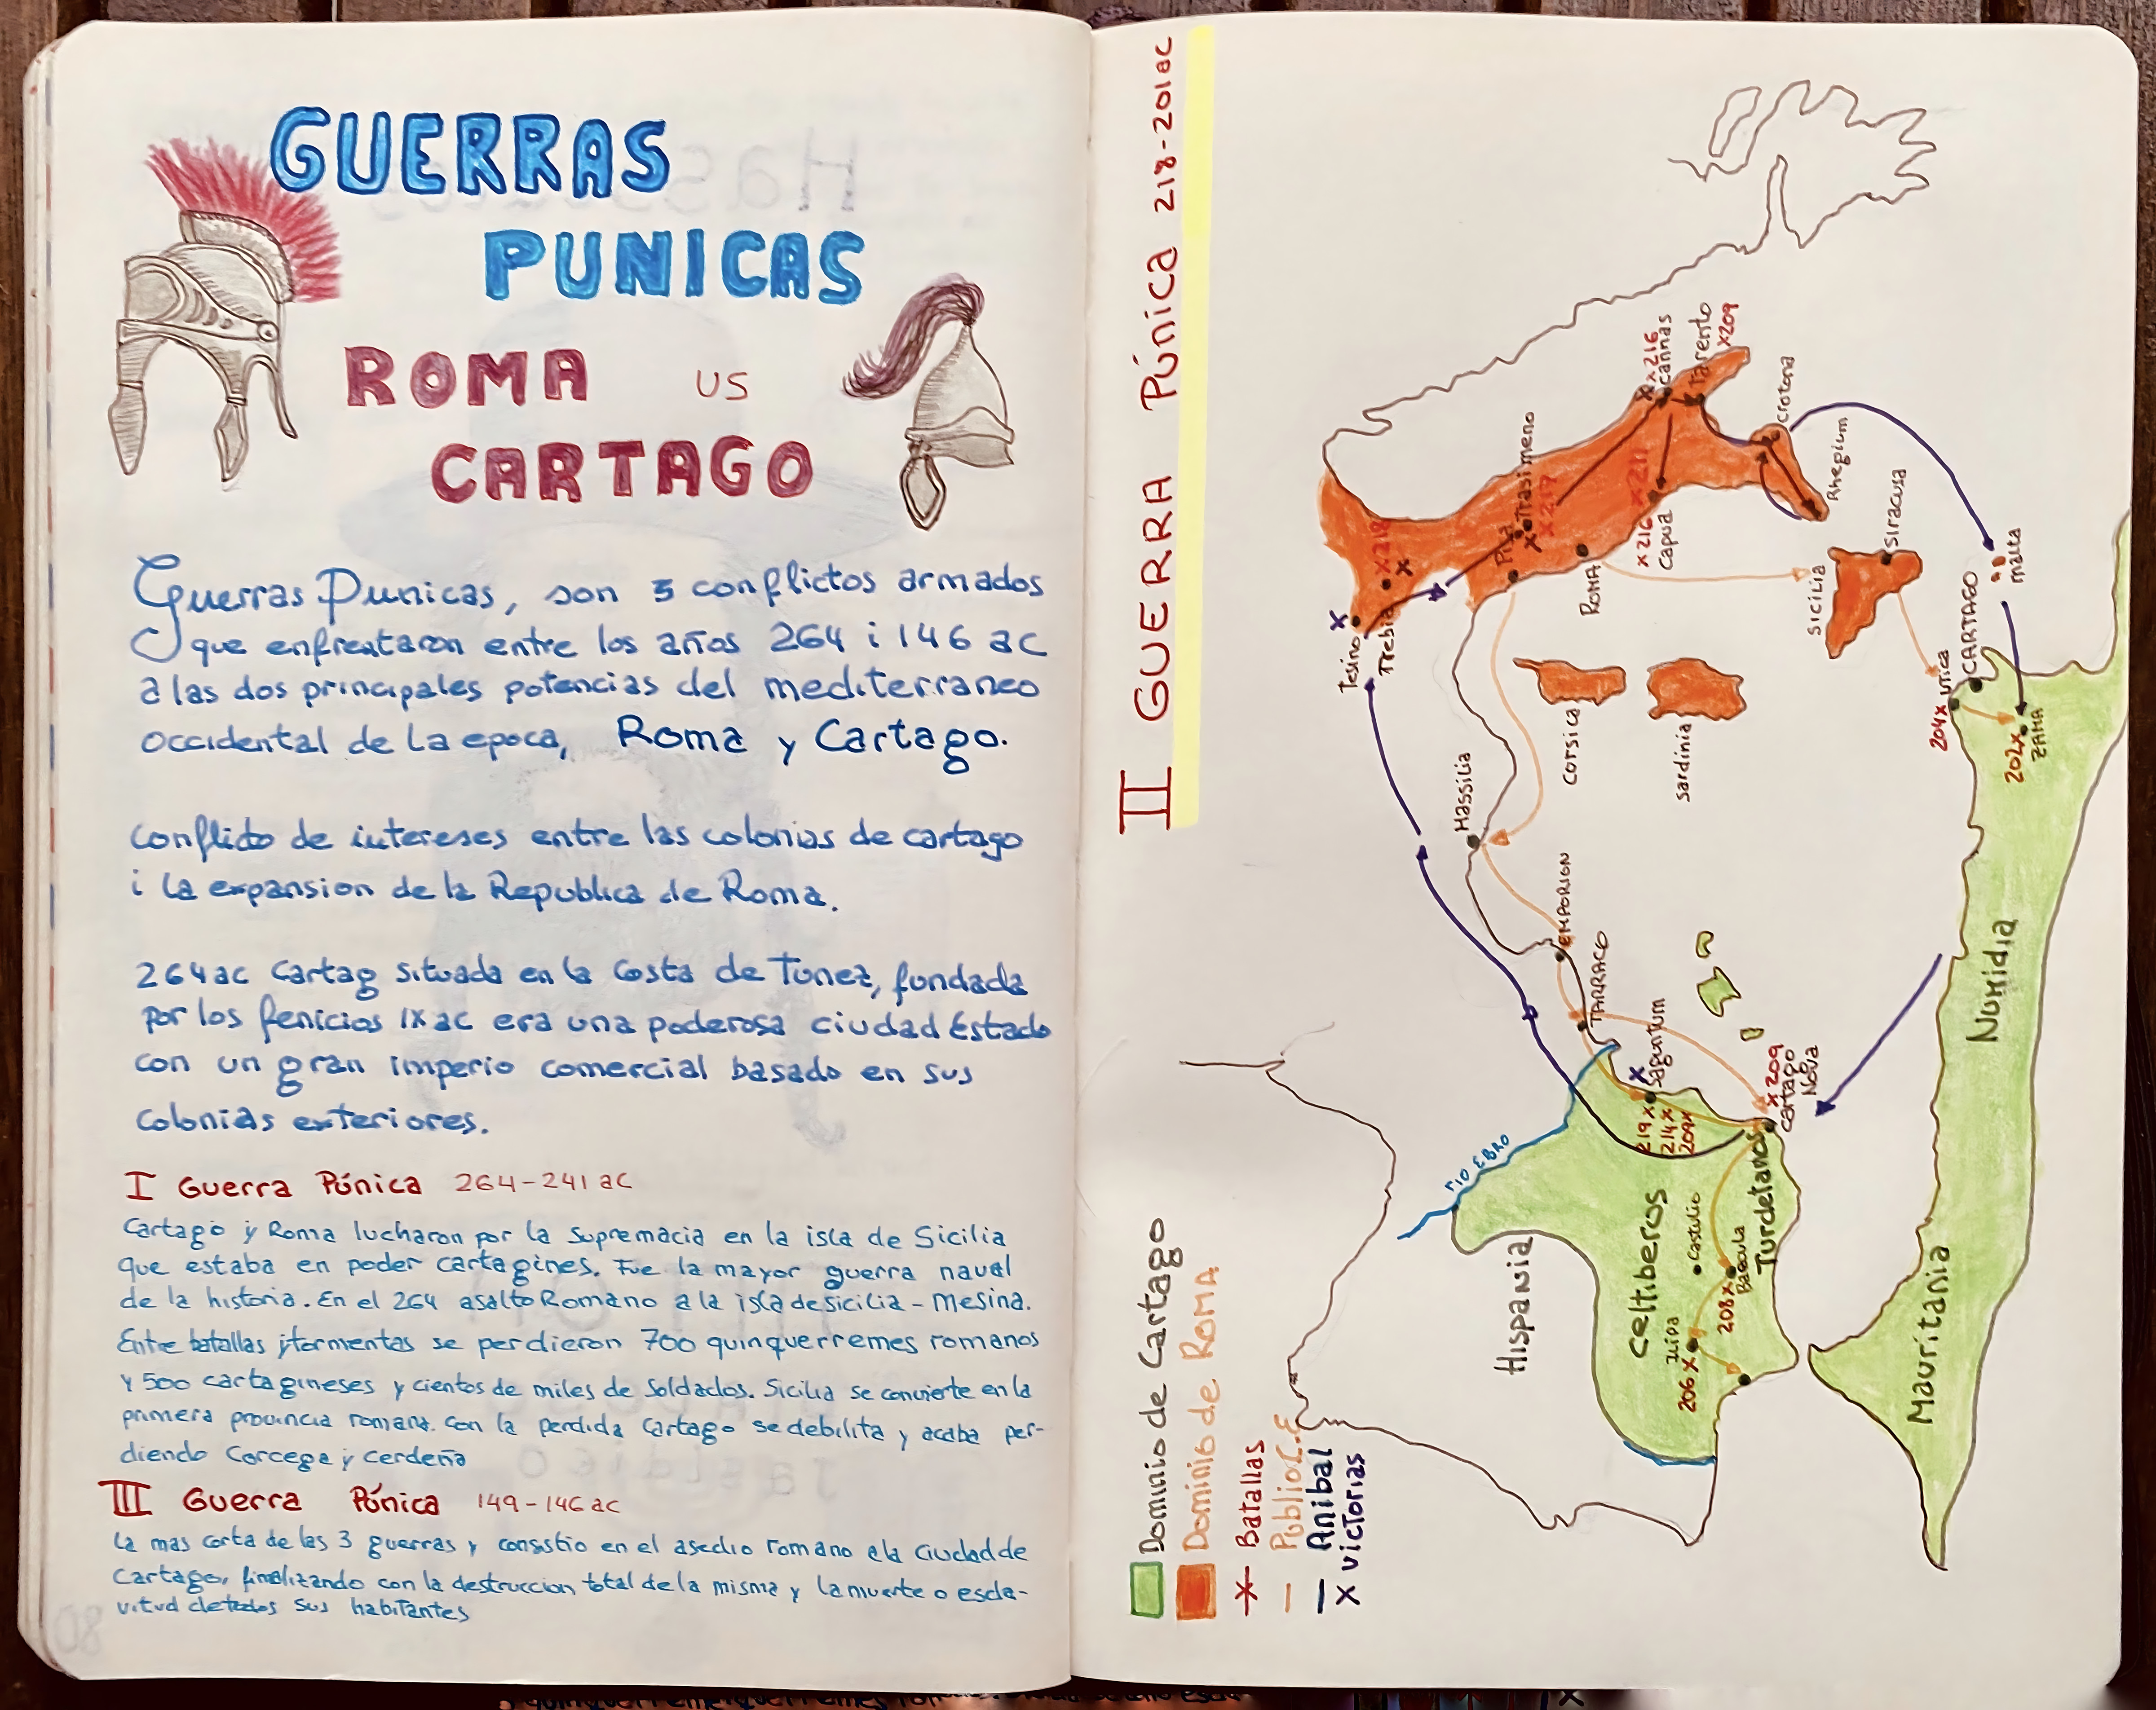 GUERRAS
PUNICAS
ROMA US
CARTAGO
Guerras Punicas, son 3 conflictos armados
que enfrentaron entre los años 264 i 146 ac
a las dos principales potencias del mediterraneo
occidental de la epoca, Roma y Cartago.
conflicto de intereses entre las colonias de cartago
i la expansion de la Republica de Roma.
264 ac Cartag situada en la Costa de Tunez, fundada
por los fenicios IX ac era una poderosa ciudad Estado
con un gran imperio comercial basado en sus
colonias exteriores.
I Guerra Púnica 264-241 ac
Cartago y Roma lucharon por la supremacia en la isla de Sicilia
que estaba en poder cartagines. Fue la mayor guerra naval
de la historia. En el 264 asalto Romano a la isla de sicilia - Mesina.
Entre batallas y tormentas se perdieron 700 quinquerremes romanos
y 500 cartagineses y cientos de miles de soldados. Sicilia se convierte en la
primera provincia romana. Con la perdida Cartago se debilita y acaba per-
diendo Corcega y Cerdeña
III Guerra Púnica 149-146 ac
La mas corta de las 3 guerras y consistio en el asedio romano a la ciudad de
Cartago, finalizando con la destruccion total de la misma y la muerte o escla-
vitud de todos sus habitantes
II GUERRA PÚNICA 218-201 ac
Tesino x
Trebia
x 218
x
Pisa
x Trasimeno
x 217
ROMA
x 216 x 211
Capua
x x 216
Cannas
Tarento
x 209
Crotona
Rhegium
Sicilia
Siracusa
Malta
Corsica
Sardinia
Massilia
EMPORION
TARRACO
rio EBRO
x Saguntum
219 x
214 x
209 x
x 209
Cartago
Nova
Hispania
Celtiberos
Castulio
Baecula
208 x
Ilipa
206 x
Turdetanos
204 x Utica
CARTAGO
202 x
ZAMA
Numidia
Mauritania
Dominio de Cartago
Dominio de ROMA
x Batallas
Publio C.E
Anibal
x victorias